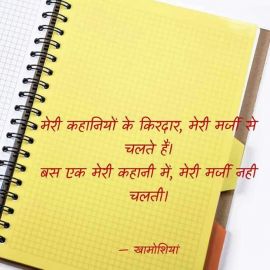 मेरी कहानियों के किरदार, मेरी मर्जी से
चलते हैं।
बस एक मेरी कहानी में, मेरी मर्जी नही
चलती।
— खामोशियां